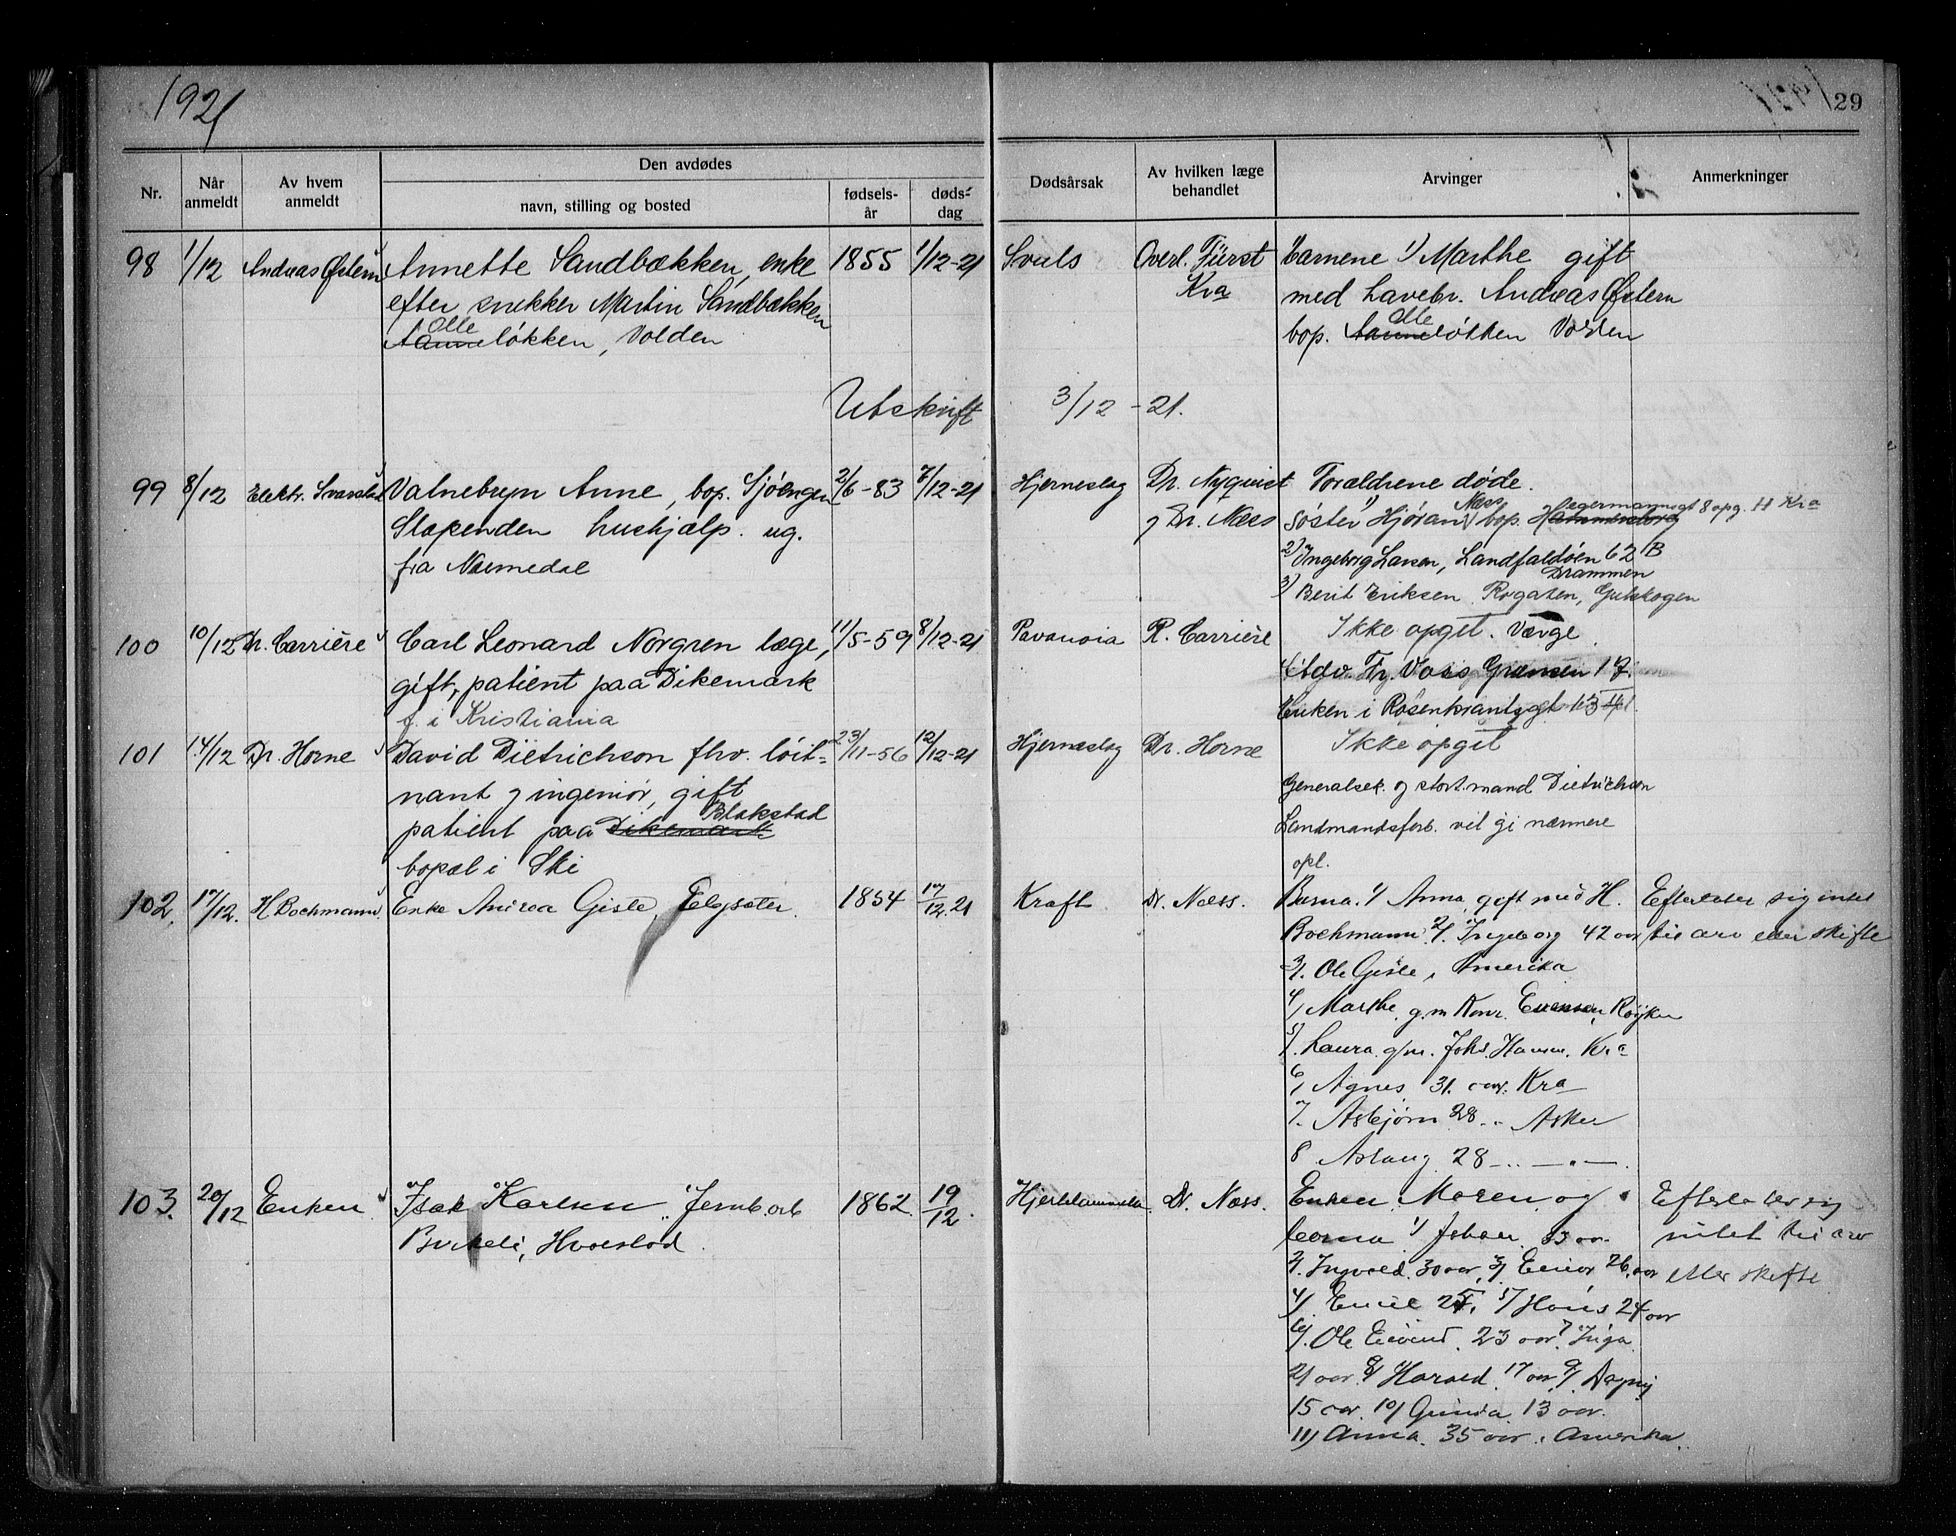 1921
29
Nr.
Når anmeldt
Av hvem anmeldt
Den avdødes
navn, stilling og bosted
fødsels-år
døds-dag
Dødsårsak
Av hvilken læge behandlet
Arvinger
Anmerkninger
98 1/12 Andreas Østern Annette Sandbækken, enke 1855 1/12-21 Svuls Overl. Fürst barnene 1) Marthe gift
efter snekker Martin Sandbækken Kra med havebr. Andreas Østern
Olle
løkken, Volden bop. Olleløkken Volden
Utskrift 3/12 - 21.
99 8/12 Elektr. Svarstad Valnebryn Anne, bop. Sjøengen 2/6-83 7/12-21 Hjerneslag Dr. Nyquist Forældrene døde.
Slæpenden hushjælp. ug. og Dr. Næss søster 1) Hjøran Næss bop. Hammersborg 8 opg. H Kra
fra Numedal 2) Ingeborg Larsen, Landfaldøen 62 B
Drammen
3) Berit Eriksen Rogaten, Gulskogen
100 10/12 Dr. Carrière Carl Leonard Norgren læge, 11/5-59 8/12-21 Paranoia R. Carrière Ikke opget. Værge
gift, patient paa Dikemark Fr. Voss Grænsen 17.
f. i Kristiania Enken i Rosenkrantzgt 13
101 14/12 Dr. Horne David Dietrichson fhv. løit- 23/11-56 12/12-21 Hjerneslag Dr. Horne Ikke opget
nant og ingeniør, gift Generalsek. og stort.mand Dietrichson
patient paa Dikemark Blakstad Landmandsforb. vil gi nærmere
bopæl i Ski opl.
102. 17/12. H Bochmann Enke Andrea Gisle, Elgsæter. 1854 17/12.21 Kræft Dr. Næss. Barna. 1) Anna, gift med H. Efterlater sig intet
Bochmann 2). Ingeborg 42 aar til arv eller skifte
3). Ole Gisle, Amerika
4) Marthe g.m Konr. Evensen, Røyken
5). Laura g/m. Johs. Hansen. Kra
6) Agnes 31. aar. Kra
7. Asbjørn 28 " Asker
8 Aslaug 28 - " - " -
103. 20/12 Enken Isak Karlsen, Jernb.arb 1862. 19/12. Hjertelammelse Dr. Næss. Enken Maren og Efterlater sig
Birkeli, Hvalstad. barna 1) Johan 33 aar. intet til arv
2). Ingvald 30 aar, 3) Einar 26 aar eller skifte
4) Emil 25, 5) Hans 24 aar
6). Ole Eivind 23 aar 7 Inga
21 aar. 8) Harald. 17 aar 9) Dagny
15 aar. 10) Gunda 13 aar.
11) Anna 35 aar i Amerika.